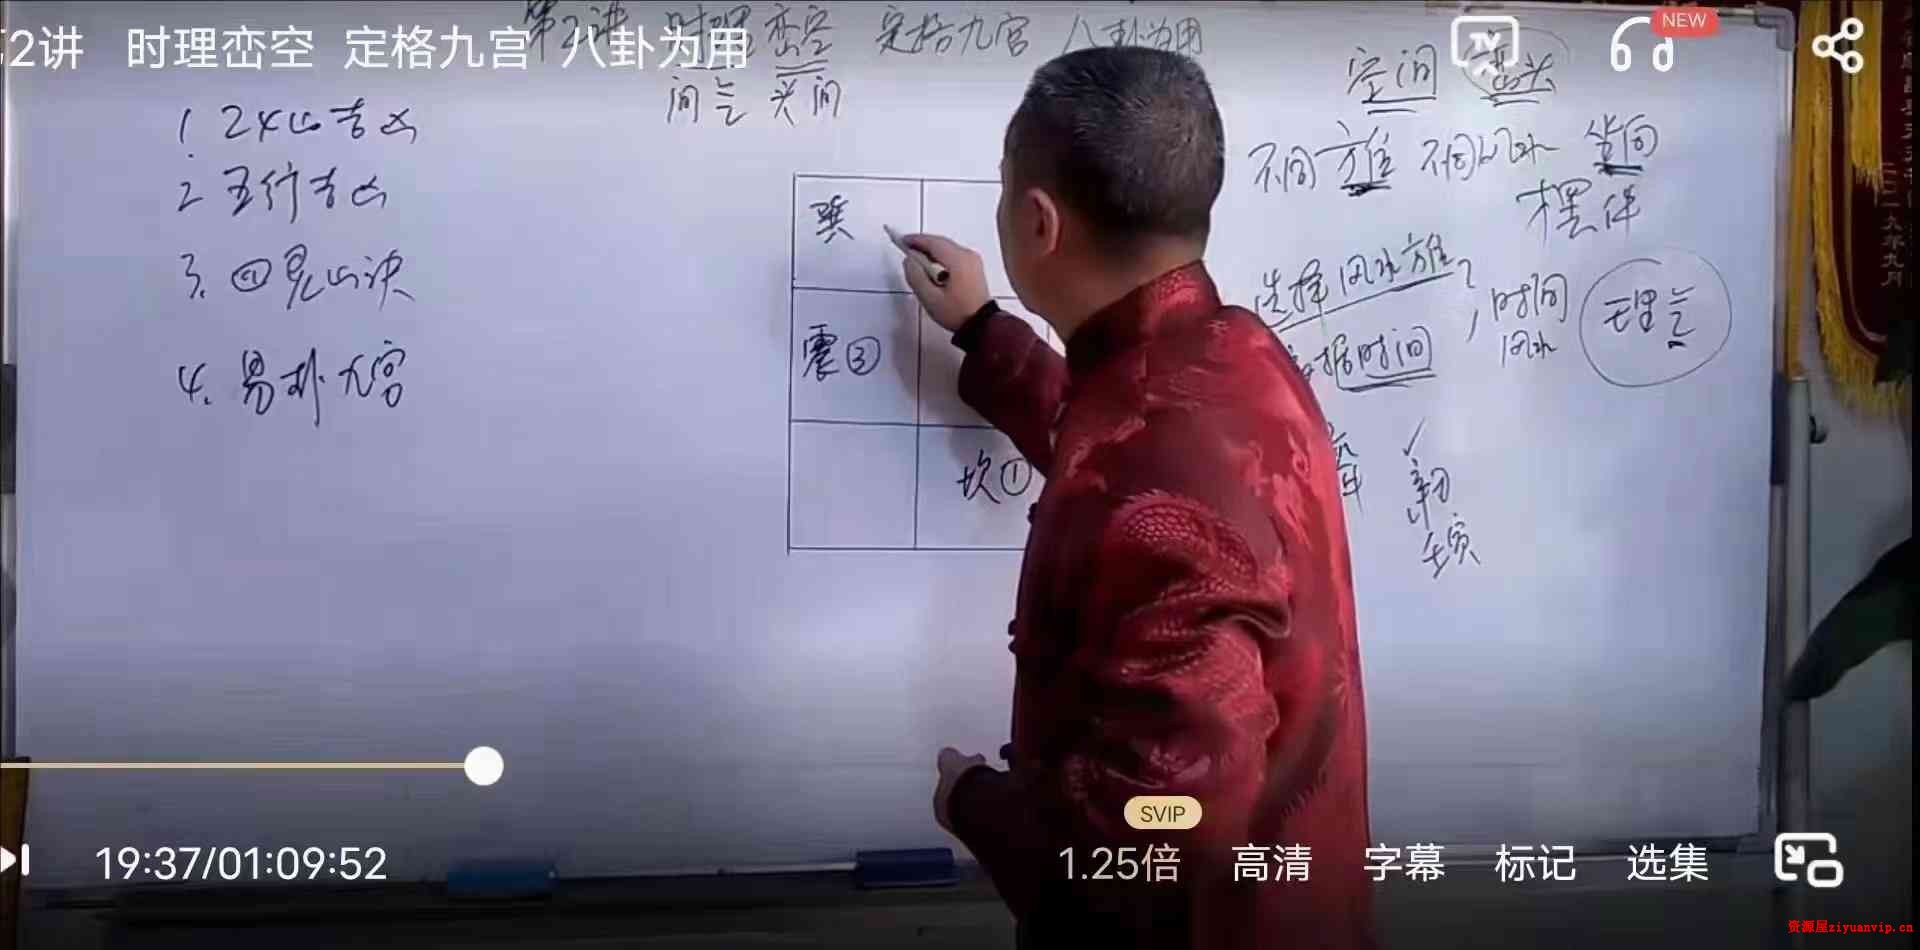 第2讲 时理峦空 定格九宫 八卦为用
2讲 时理峦空 定格九宫 八卦为用
NEW
间气 头间
空间 峦头
1. 24山吉凶
2 五行吉凶
3.
4. 易卦九宫
不同方位 不同风水 坐向
摆件
选择风水方位?
据时间
时间
风水
理气
巽
震③
坎①
二〇一九年九月
19:37/01:09:52
SVIP
1.25倍 高清 字幕 标记 选集
资源屋ziyuanvip.cn